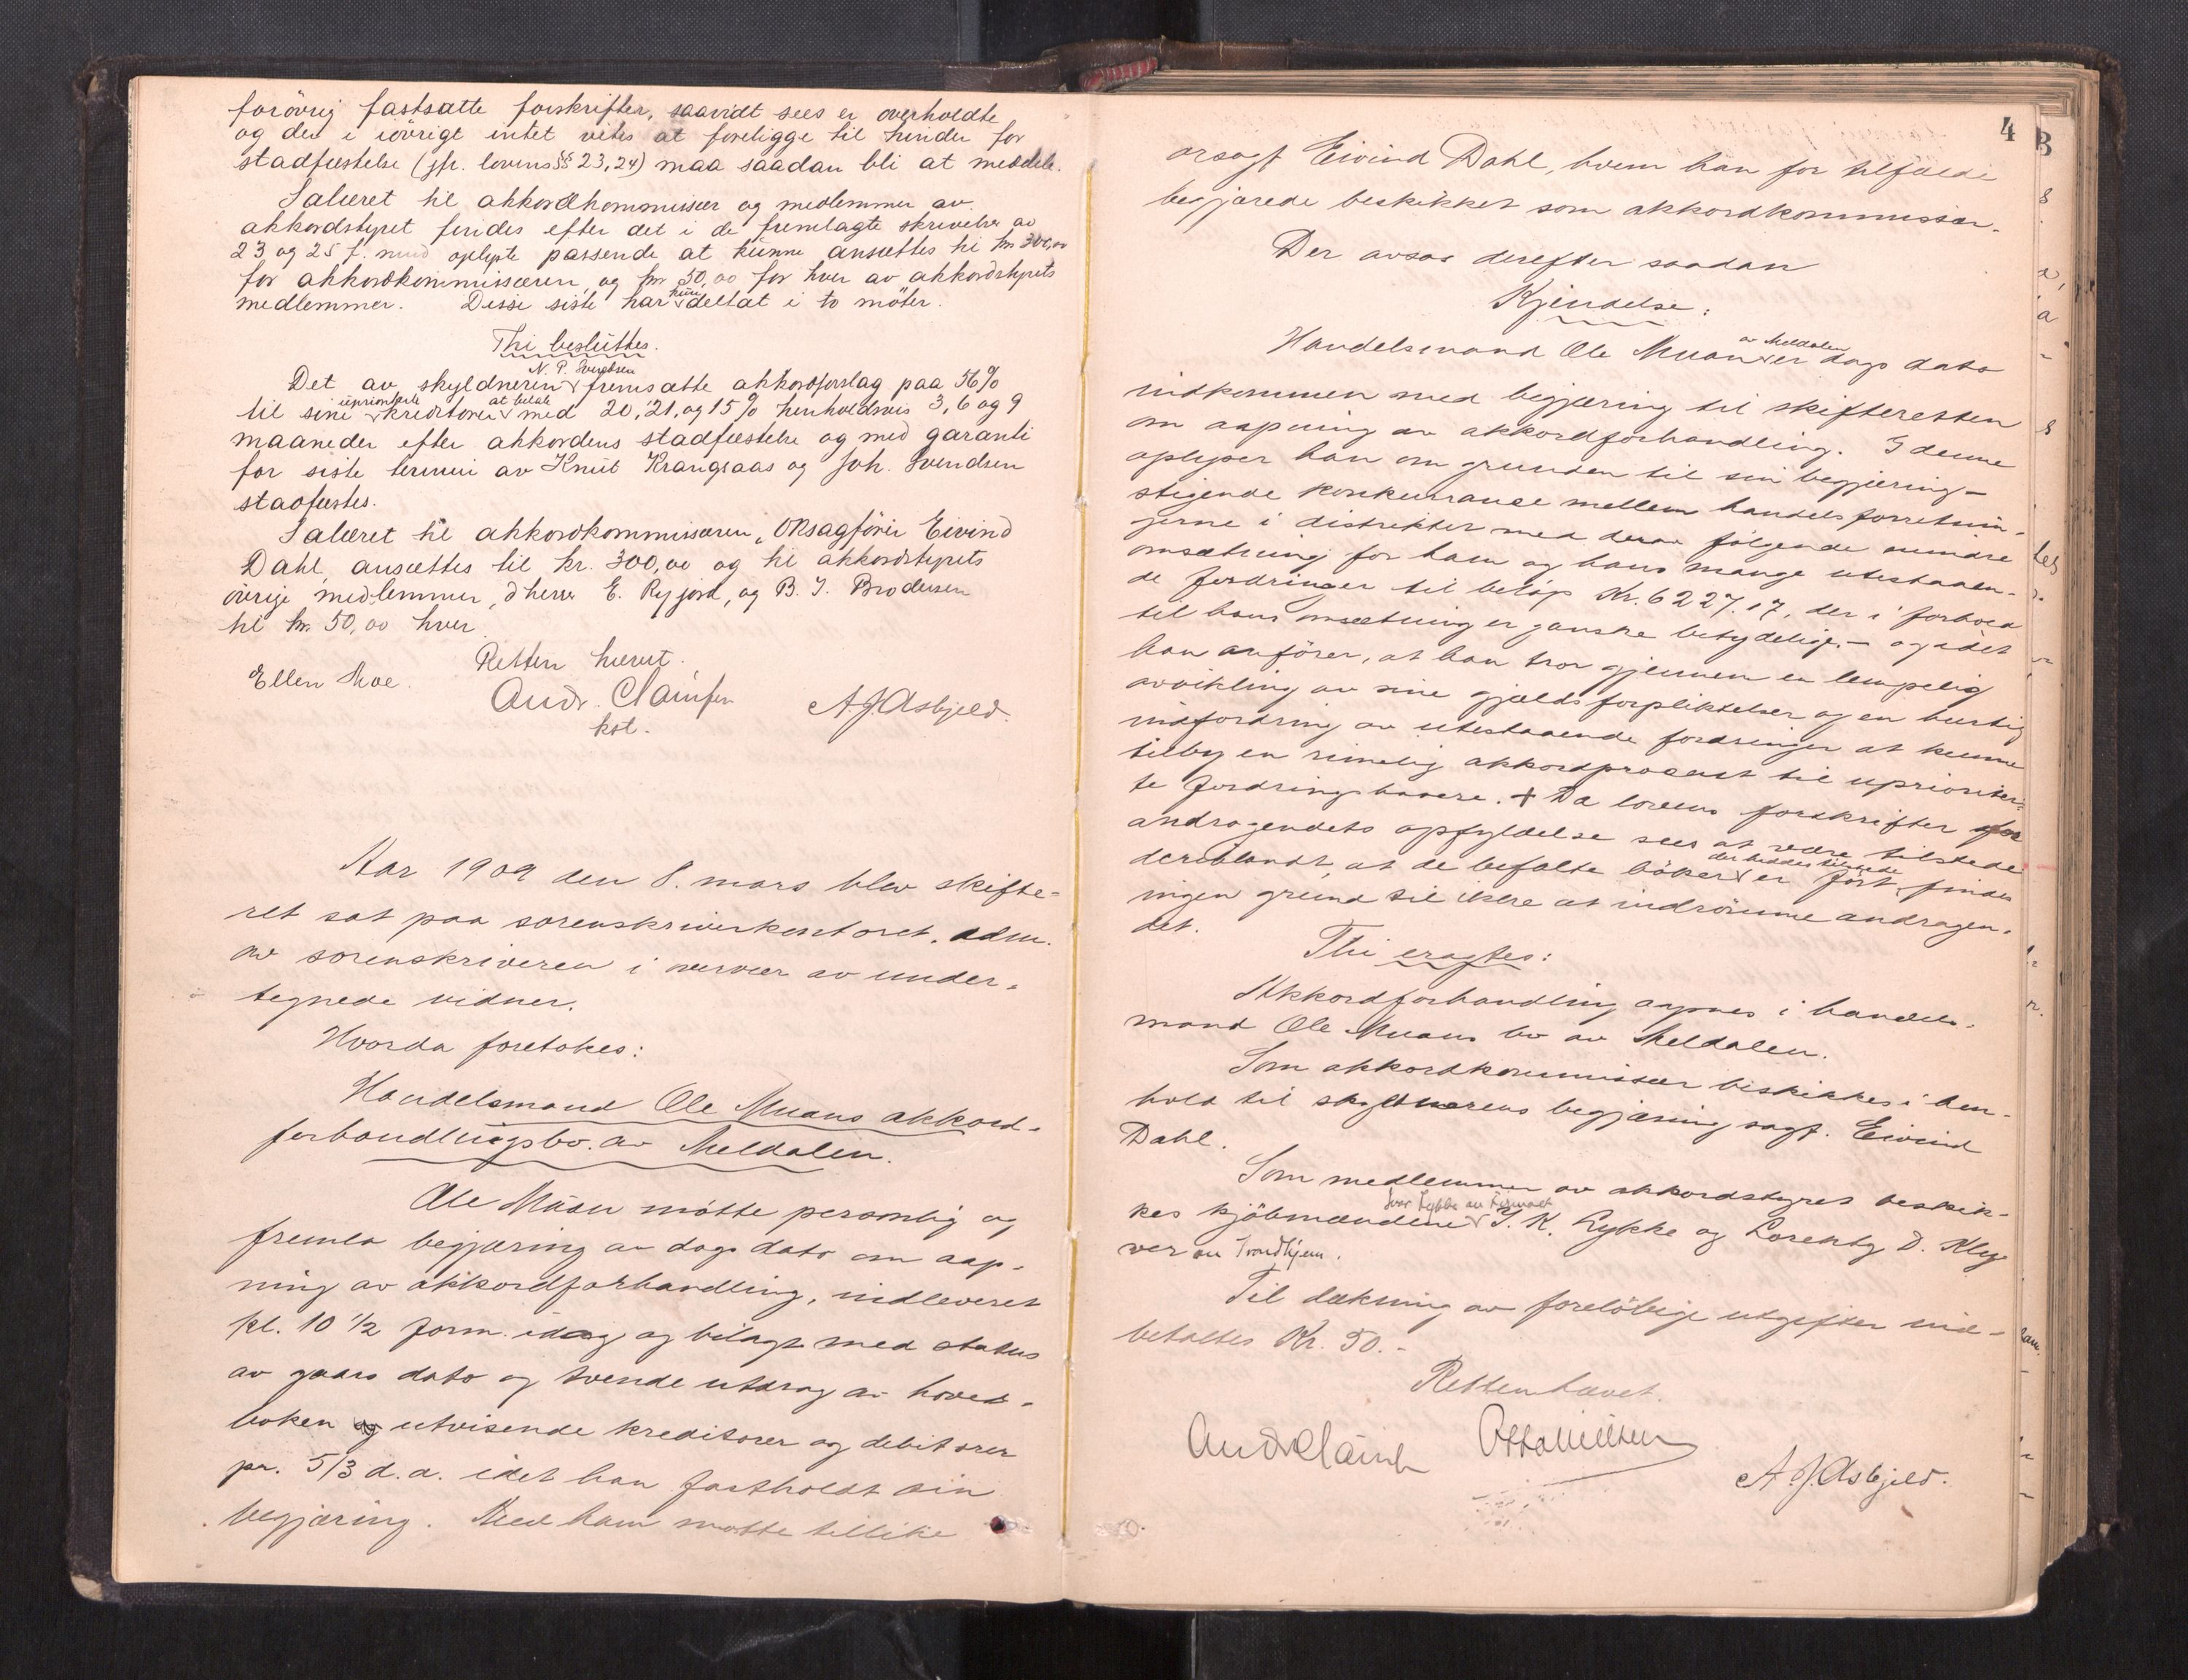 forövrig fastsatte forskrifter, saavidt sees er overholdte
og der i iövrigt intet vites at foreligge til hinder for
stadfæstelse (jfr. lovens §§ 23, 24) maa saadan bli at meddele.
Salæret til akkordkommissær og medlemmer av
akkordstyret findes efter det i de fremlagte skrivelser av
23 og 25 f. mnd oplyste passende at kunne ansættes til kr 300,00
for akkordkommissæren og kr 50,00 for hver av akkordstyrets
medlemmer. Disse siste har kun deltat i to möter.
Thi besluttes.
N. P. Svendsen
Det av skyldneren fremsatte akkordforslag paa 56%
upriorterte at betale
til sine kreditorer med 20, 21, og 15% henholdsvis 3, 6 og 9
maaneder efter akkordens stadfæstelse og med garanti
for siste termin av Knut Krangsaas og Joh. Svendsen
stadfæstes.
Salæret til akkordkommissæren, Orsagförer Eivind
Dahl, ansættes til kr. 300,00 og til akkordstyrets
övrige medlemmer, d'herrer E. Ryjord, og B. I. Brodersen
til kr. 50,00 hver.
Retten hævet.
Ellen Moe.
Andr. Claüsen
kst.
A. J. Asbjeld.
Aar 1909 den 8. mars blev skifte-
ret sat paa sorenskriverkontoret, adm.
av sorenskriveren i nærvær av under-
tegnede vidner.
Hvorda foretokes:
Handelsmand Ole Muans akkord-
forhandlingsbo av Meldalen.
Ole Muan mötte personlig og
fremla begjæring av dags dato om aap-
ning av akkordforhandling, indleveret
kl. 10 1/2 form. idag og bilagt med status
av gaars dato og tvende utdrag av hoved-
boken utvisende kreditorer og debitorer
pr. 5/3 d. a. idet han fastholdt sin
begjæring. Med ham mötte tillike
4
orsagf Eivind Dahl, hvem han for tilfælde
begjærede beskikket som akkordkommissær.
Der avsaes derefter saadan
Kjendelse:
av Meldalen
Handelsmand Ole Muan er dags dato
indkommen med begjæring til skifteretten
om aapning av akkordforhandling. I denne
oplyser han om grunden til sin begjæring -
stigende konkurranse mellem handelsforretnin-
gerne i distriktet med derav følgende mindre
omsætning for ham og hans mange utestaaen-
de fordringer til beløp Kr. 6227.17, der i forhold
til hans omsætning er ganske betydelige. - og idet
han anfører, at han tror gjennem en lempelig
avvikling av sine gjældsforpliktelser og en hurtig
indfordring av utestaaende fordringer at kunne
tilby en rimelig akkordprocent til uprioriter-
te fordringshavere. + Da lovens forskrifter for
andragendets opfyldelse sees at være tilstede
deriblandt, at de befalte böker er ført, findes
ingen grund til ikke at indrömme andragen-
det.
Thi eragtes:
Akkordforhandling aapnes i handels-
mand Ole Muans bo av Meldalen.
Som akkordkommissær beskikkes i hen-
hold til skyldnerens begjæring sagf. Eivind
Dahl.
Som medlemmer av akkordstyret beskik-
kes kjöbmændene I. K. Lykke og Lorentz D. Klü-
ver av Trondhjem.
Til dækning av foreløbige utgifter ind-
betaltes Kr. 50.-
Retten hævet.
Andr Claüsen
Otto Nilsen
A. J. Asbjeld.